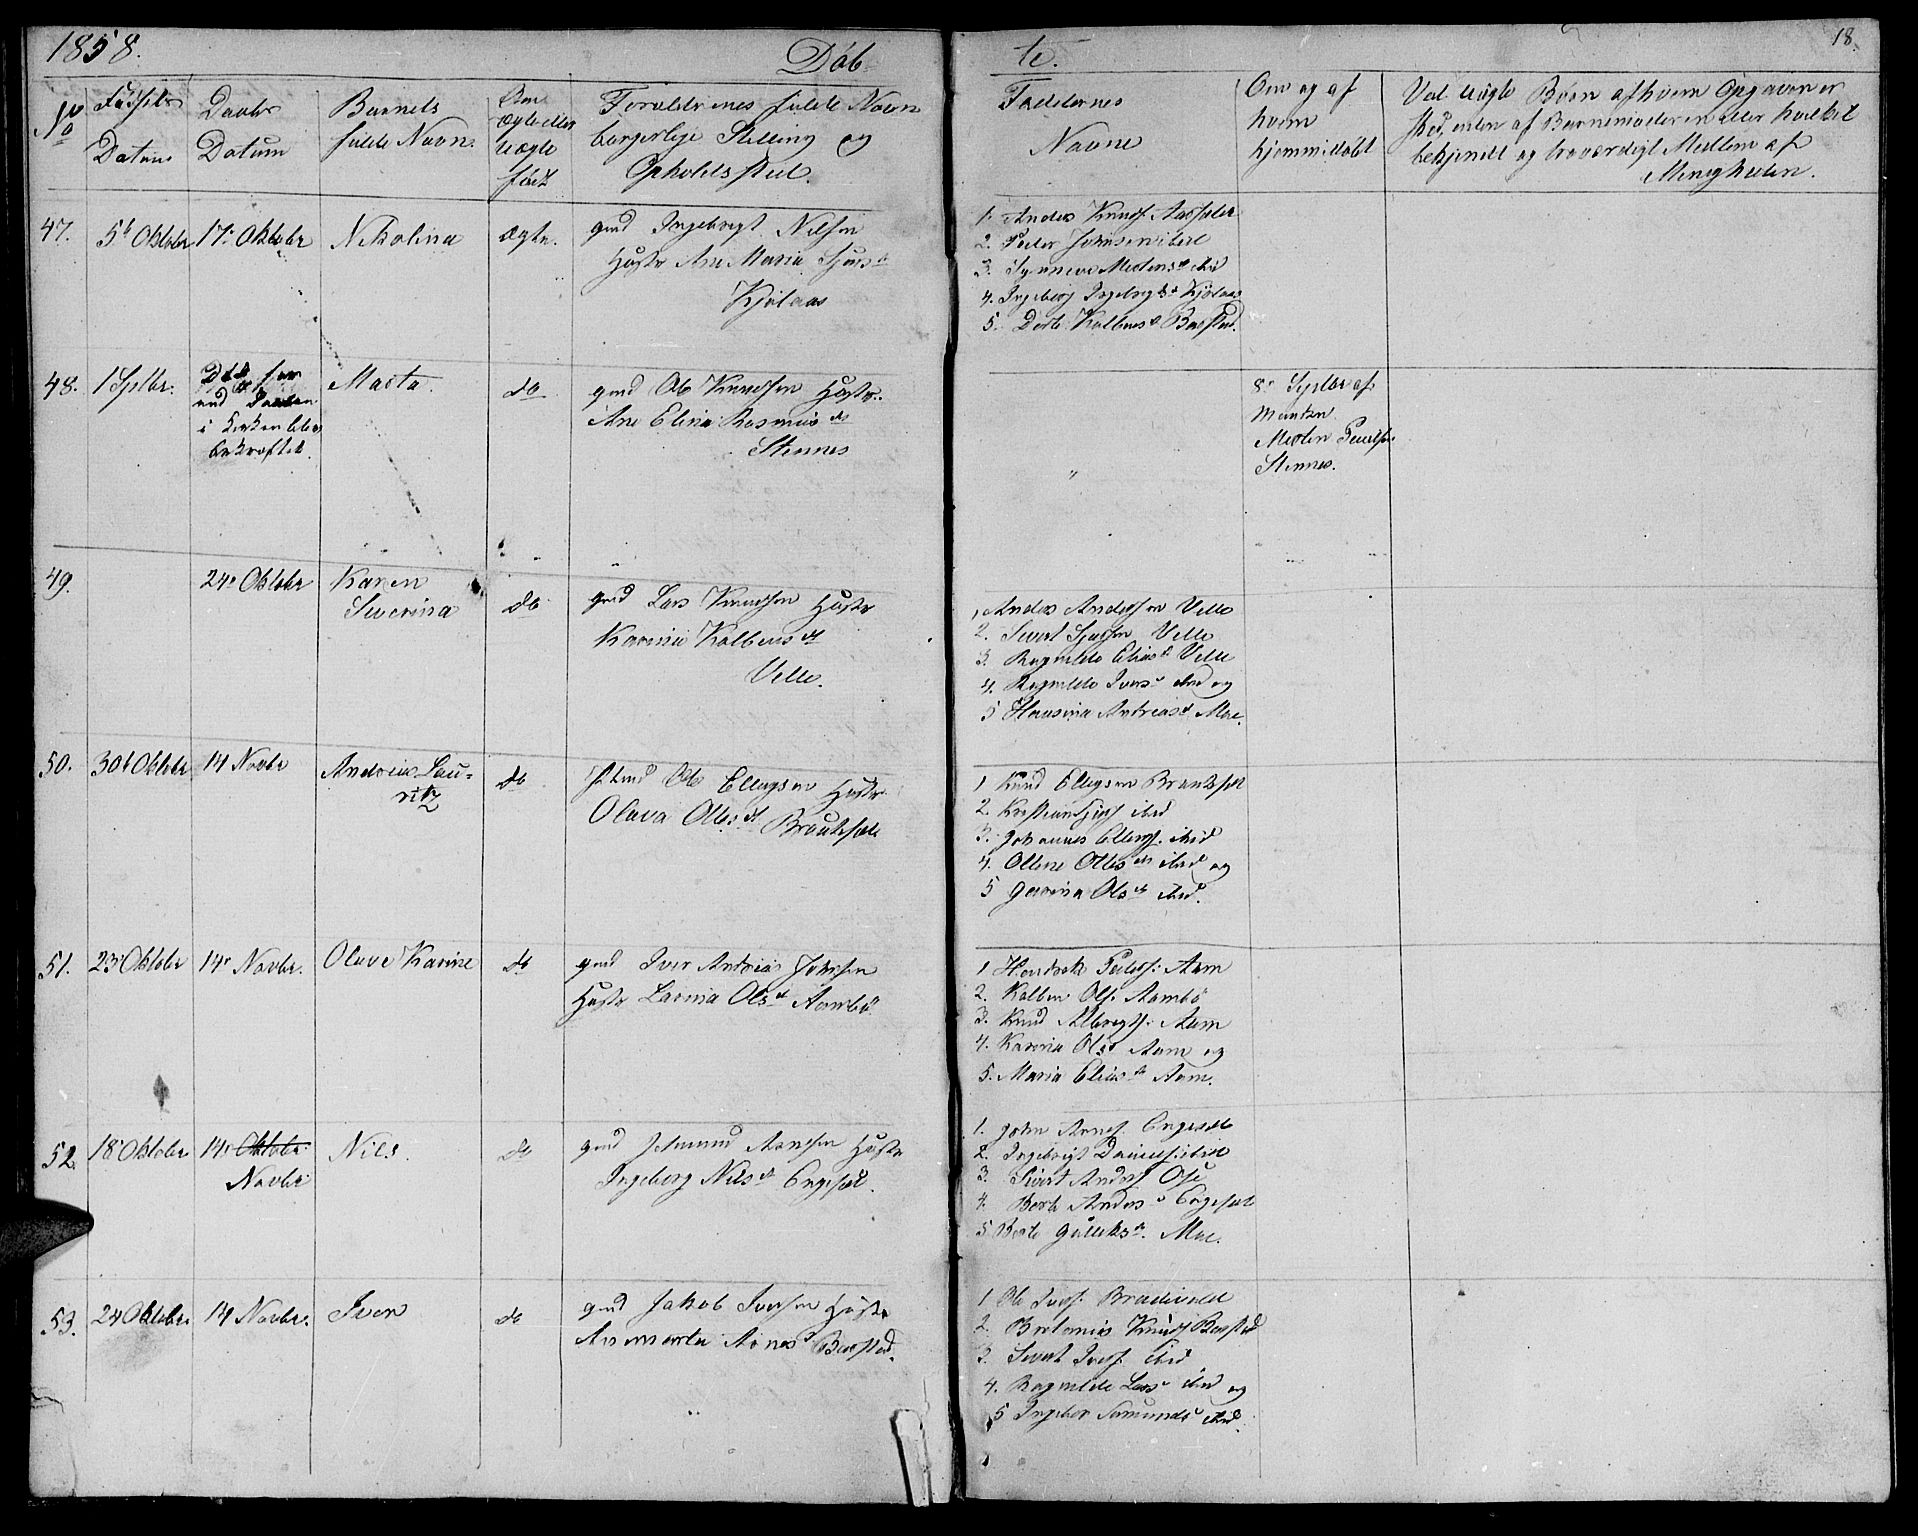 1858.
Döb
te.
18.
No
Fødsels
Datum
Daabs
Datum
Barnets
fulde Navn.
Om
ægte eller
uægte
født
Forældrenes fulde Navn
borgerlige Stilling og
Opholdssted.
Faddernes
Navne
Om og af
hvem
hjemmedøbt
Ved uægte Børn af hvem Opgaven er
skeed, enten af Barnemoderen eller hvilket
bekjendt og troværdigt Medlem af
Menigheden.
47.
5t Oktober
17. Oktober
Nikolina
Ægte.
gmd Ingebrigt Nilsen
Hustr Ane Maria
Kjølaas
1. Anders Knuds.
2. Peder Johnsen ibid
3. Synneve Mortensd ibid
4. Ingeborg Ingebrigtsd Kjølaas
5. Dorte Kolbensd Baastad.
48.
1 Septbr.
i Kirken blev
bekræftet.
Marta.
do
gmd Ole Knudsen Hustr.
Ane Elina Rasmusd
Stennes
"
8. Septbr af
Manden
Morten
Stennes.
49.
24. Oktober
Karen
Severina
do
gmd Lars Knudsen Hustr
Karina Kolbensd
Velle.
1, Anders Andersen Velle
2. Sivert Sjursen Velle
3. Ragnilde Eliasd Velle
4. Ragnilde Iversd ibid og
5 Hansina Andreasd. Moe.
50.
30t Oktober
14 Novbr
Andreas Lau-
ritz
do
Ole Ellingsen Hustr
Olava Olesd
1 Knud Ellingsen
2. ibid
3. Johannes Ellings. ibid
4. Oline Olesd ibid og
5 Olsd ibid.
51.
23 Oktober
14. Novbr.
Olave Karine
do
gmd Iver Andreas Johnsen
Hustr Lavina Olsd Aambø
1 Peders. Aam
2. Kolben Ols. Aambø
3. Knud Albregts. Aam
4. Karina Olsd Aam og
5. Maria Eliasd Aam.
52.
18 Oktober
14. Oktober
Novbr
Nils.
do
gmd Arnesen Hustr
Ingeborg Nilsd Engeset.
1. John Arnes. Engeset
2. Ingebrigt Daniels. ibid
3. Sivert Anders Ose
4. Berte Andersd Engeset
5 Berte Gulleksd. Moe.
53.
24 Oktober.
14 Novbr.
Iver
do
gmd Jakob Iversen Hustr
Anemarta Arnesd Baastad.
1 Ole Ivers.
2. Knuds Baastad
3. Sivert Ivers. ibid
4. Ragnilde Larsd ibid og
5 Ingebor ibid.